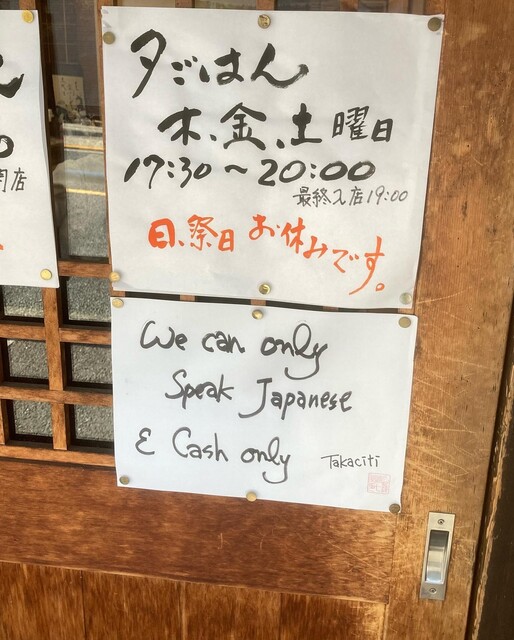 夕ごはん
木、金、土曜日
17:30～20:00
最終入店19:00
日、祭日お休みです。
We can only
Speak Japanese
& Cash only
Takaciti
ん
0
閉店